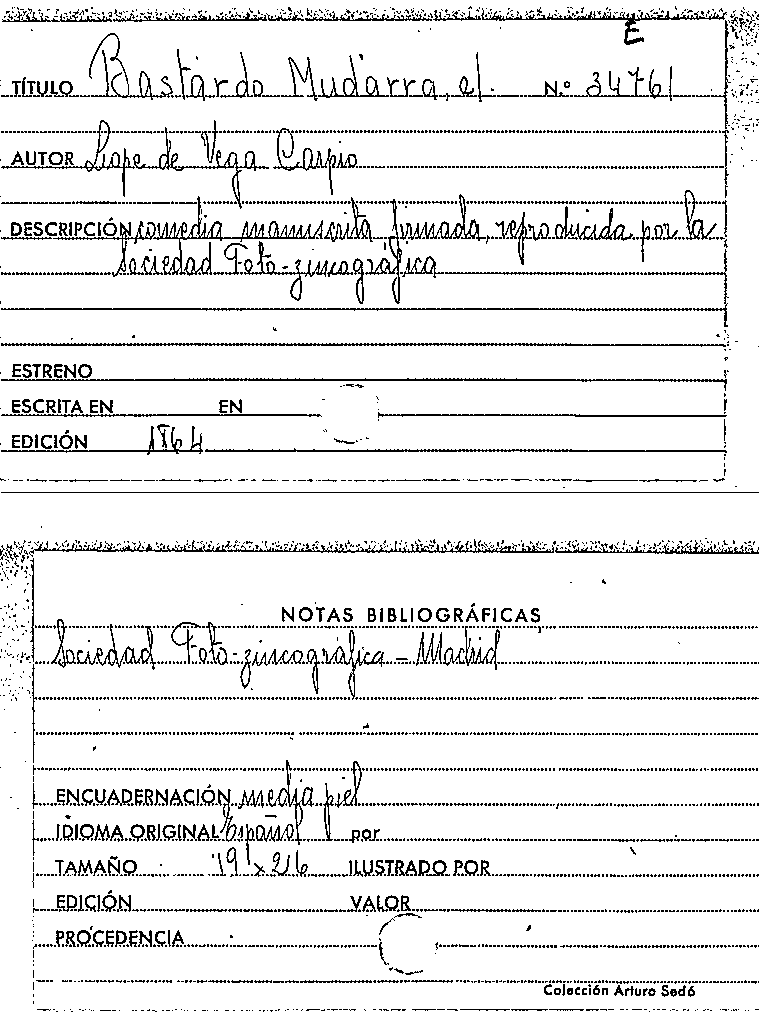 E
TÍTULO Bastardo Mudarra, el. N.º 34761
AUTOR Lope de Vega Carpio
DESCRIPCIÓN comedia manuscrita firmada, reproducida por la
Sociedad Foto-zincográfica
ESTRENO
ESCRITA EN EN
EDICIÓN 1864
NOTAS BIBLIOGRÁFICAS
Sociedad Foto-zincográfica – Madrid
ENCUADERNACIÓN media piel
IDIOMA ORIGINAL Español por
TAMAÑO ILUSTRADO POR
EDICIÓN VALOR
PROCEDENCIA
Colección Arturo Sedó